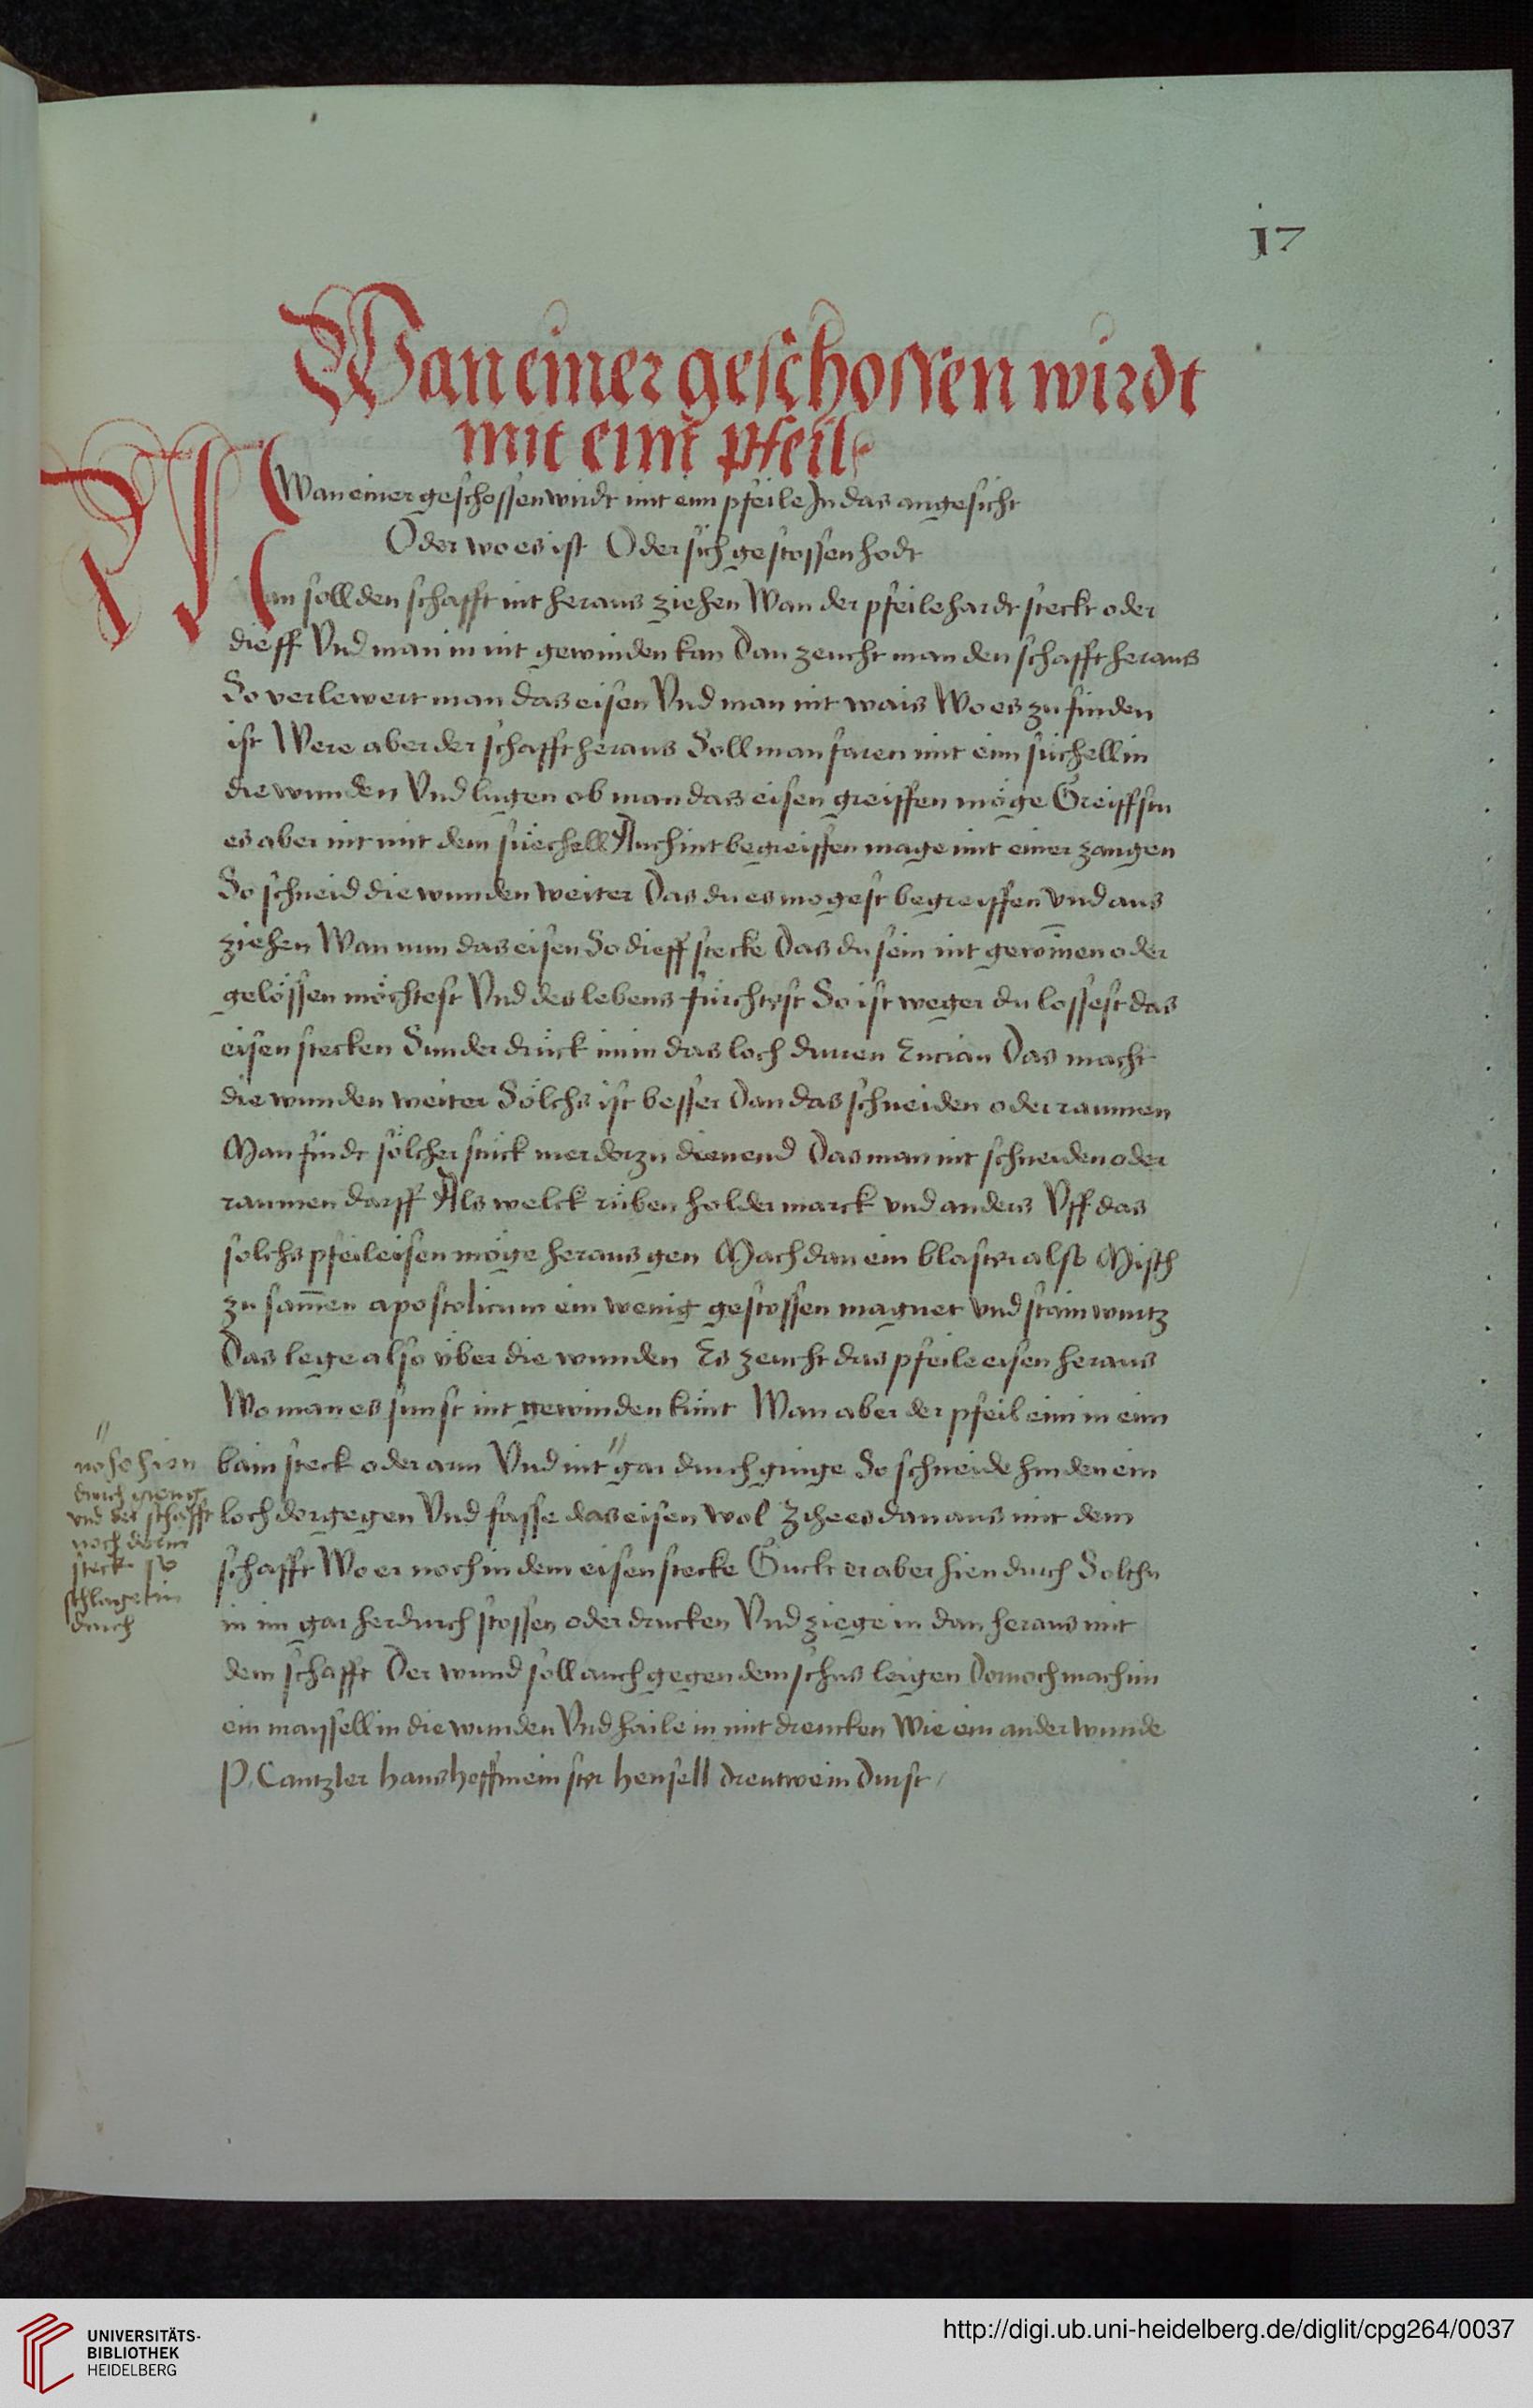 17
Wan einer geschossen wirdt
mit eim pfeil
Wan einer geschossen wirdt mit eim pfeile In das angesicht
Oder wo es ist Oder sich gestossen hodt
Man soll den schafft nit heraus ziehen Wan der pfeile hardt steckt oder
dieff Vnd man in nit gewinden kan Dan zeucht man den schafft heraus
So verlewert man das eisen Vnd man nit wais Wo es zu finden
ist Were aber der schafft heraus Soll man faren mit eim süchell in
die wunden Vnd lugen ob man das eisen greiffen möge Greiffstu
es aber nit mit dem süechell Auch nit begreiffen mage mit einer zangen
So schneid die wunden weiter Das du es mogest begreiffen vnd aus
ziehen Wan nun das eisen So dieff stecke Das du sein nit gewinnen oder
gelössen möchtest Vnd des lebens fürchtest So ist weger du lossest das
eisen stecken Sunder drück im in das loch durren Encian Das macht
die wunden weiter Sölchs ist besser Dan das schneiden oder raumen
Man findt sölcher stück mer dorzu dienend Das man nit schneiden oder
raumen darff Als welck rüben holder marck vnd anders Vff das
solchs pfeileisen möge heraus gen Mach dan ein blaster also Misch
zu samen apostolicum ein wenig gestossen magnet vnd stain wurtz
Das lege also über die wunden Es zeucht das pfeile eisen heraus
Wo man es sunst nit gewinden künt Wan aber der pfeil eim in eim
bain steck oder arm Vnd nit " gar durch ginge So schneide hinden ein
loch dorgegen Vnd fasse das eisen wol Zihe es dan aus mit dem
schafft Wo er noch in dem eisen stecke Guckt er aber hien durch Soltu
in im gar herdurch stossen oder drucken Vnd ziege in dan heraus mit
dem schafft Der wund soll auch gegen dem schus leigen Domoch mach im
ein mayssell in die wunden Vnd haile in mit drencken Wie ein ander wunde
P. Cantzler hans hoffmeinster hensell drentwein Durst
"
hien
durch gieng
vnd der schafft
noch dorin
steck so
schlage in
durch
UNIVERSITÄTS-
BIBLIOTHEK
HEIDELBERG
http://digi.ub.uni-heidelberg.de/diglit/cpg264/0037